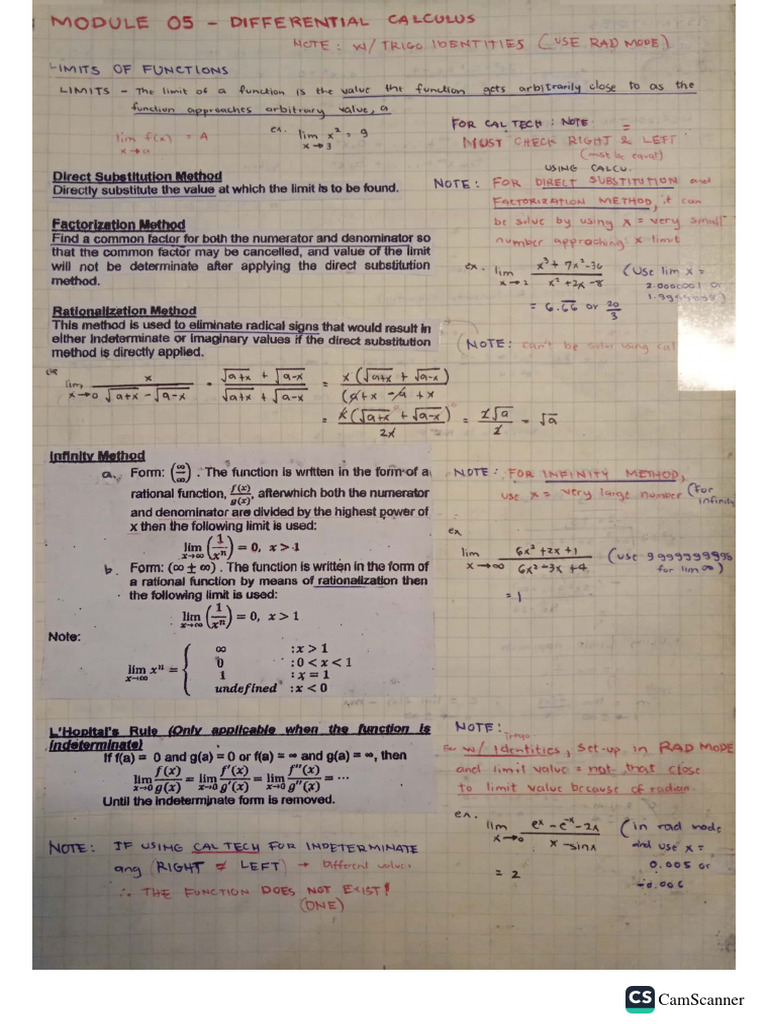 MODULE 05 - DIFFERENTIAL CALCULUS
NOTE: W/ TRIGO IDENTITIES (USE RAD MODE)
LIMITS OF FUNCTIONS
LIMITS - The limit of a function is the value the function gets arbitrarily close to as the
function approaches arbitrary value, a
lim f(x) = A
x→a
ex. lim x² = 9
x→3
FOR CALTECH: NOTE =
MUST CHECK RIGHT & LEFT
(must be equal)
USING CALCU.
Direct Substitution Method
Directly substitute the value at which the limit is to be found.
NOTE: FOR DIRECT SUBSTITUTION and
FACTORIZATION METHOD, it can
be solve by using x = very small
number approaching x limit
Factorization Method
Find a common factor for both the numerator and denominator so
that the common factor may be cancelled, and value of the limit
will not be determinate after applying the direct substitution
method.
ex. lim x→2 (x³ + 7x² - 36)/(x² + 2x - 8) (Use lim x =
2.0000001 or
= 6.66 or 20/3
Rationalization Method
This method is used to eliminate radical signs that would result in
either indeterminate or imaginary values if the direct substitution
method is directly applied.
(NOTE: can't be solve using cal
lim x→0 x/(√a+x - √a-x) · (√a+x + √a-x)/(√a+x + √a-x) = x(√a+x + √a-x)/(a+x - a + x)
= x(√a+x + √a-x)/2x = 2√a/2 = √a
Infinity Method
a. Form: (∞/∞). The function is written in the form of a
rational function, f(x)/g(x), afterwhich both the numerator
and denominator are divided by the highest power of
x then the following limit is used:
lim x→∞ (1/xⁿ) = 0, x > 1
b. Form: (∞ ± ∞). The function is written in the form of
a rational function by means of rationalization then
the following limit is used:
lim x→∞ (1/xⁿ) = 0, x > 1
Note:
lim x→∞ xⁿ = {
∞ : x > 1
0 : 0 < x < 1
1 : x = 1
undefined : x < 0
NOTE: FOR INFINITY METHOD,
use x = very large number (For
infinity
ex
lim x→∞ (6x² + 2x + 1)/(6x² - 3x + 4) (use 9999999999
for lim ∞)
= 1
L'Hopital's Rule (Only applicable when the function is
indeterminate)
If f(a) = 0 and g(a) = 0 or f(a) = ∞ and g(a) = ∞, then
lim x→0 f(x)/g(x) = lim x→0 f'(x)/g'(x) = lim x→0 f''(x)/g''(x) = ...
Until the indeterminate form is removed.
NOTE:
Trigo
For w/ Identities, set-up in RAD MODE
and limit value = not that close
to limit value because of radian.
ex. lim x→0 (eˣ - e⁻ˣ - 2x)/(x - sinx) (in rad mode
and use x =
0.005 or
= 2
NOTE: IF USING CALTECH FOR INDETERMINATE
ang (RIGHT ≠ LEFT) → Different values
∴ THE FUNCTION DOES NOT EXIST!
(DNE)
CS CamScanner